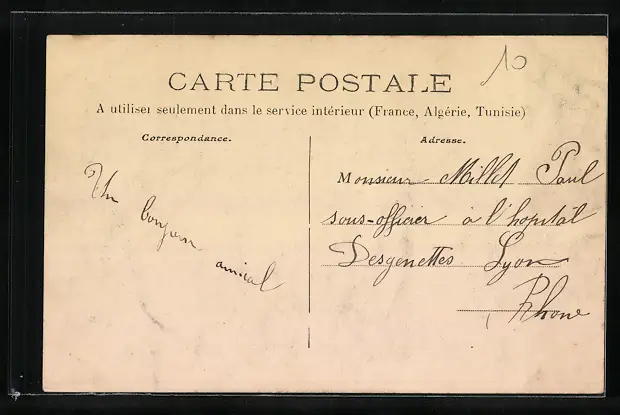 10
CARTE POSTALE
A utiliser seulement dans le service intérieur (France, Algérie, Tunisie)
Correspondance.
Adresse.
Un bonjour amical
Monsieur Millet Paul
sous-officier à l'hopital
Desgenettes Lyon
Rhone